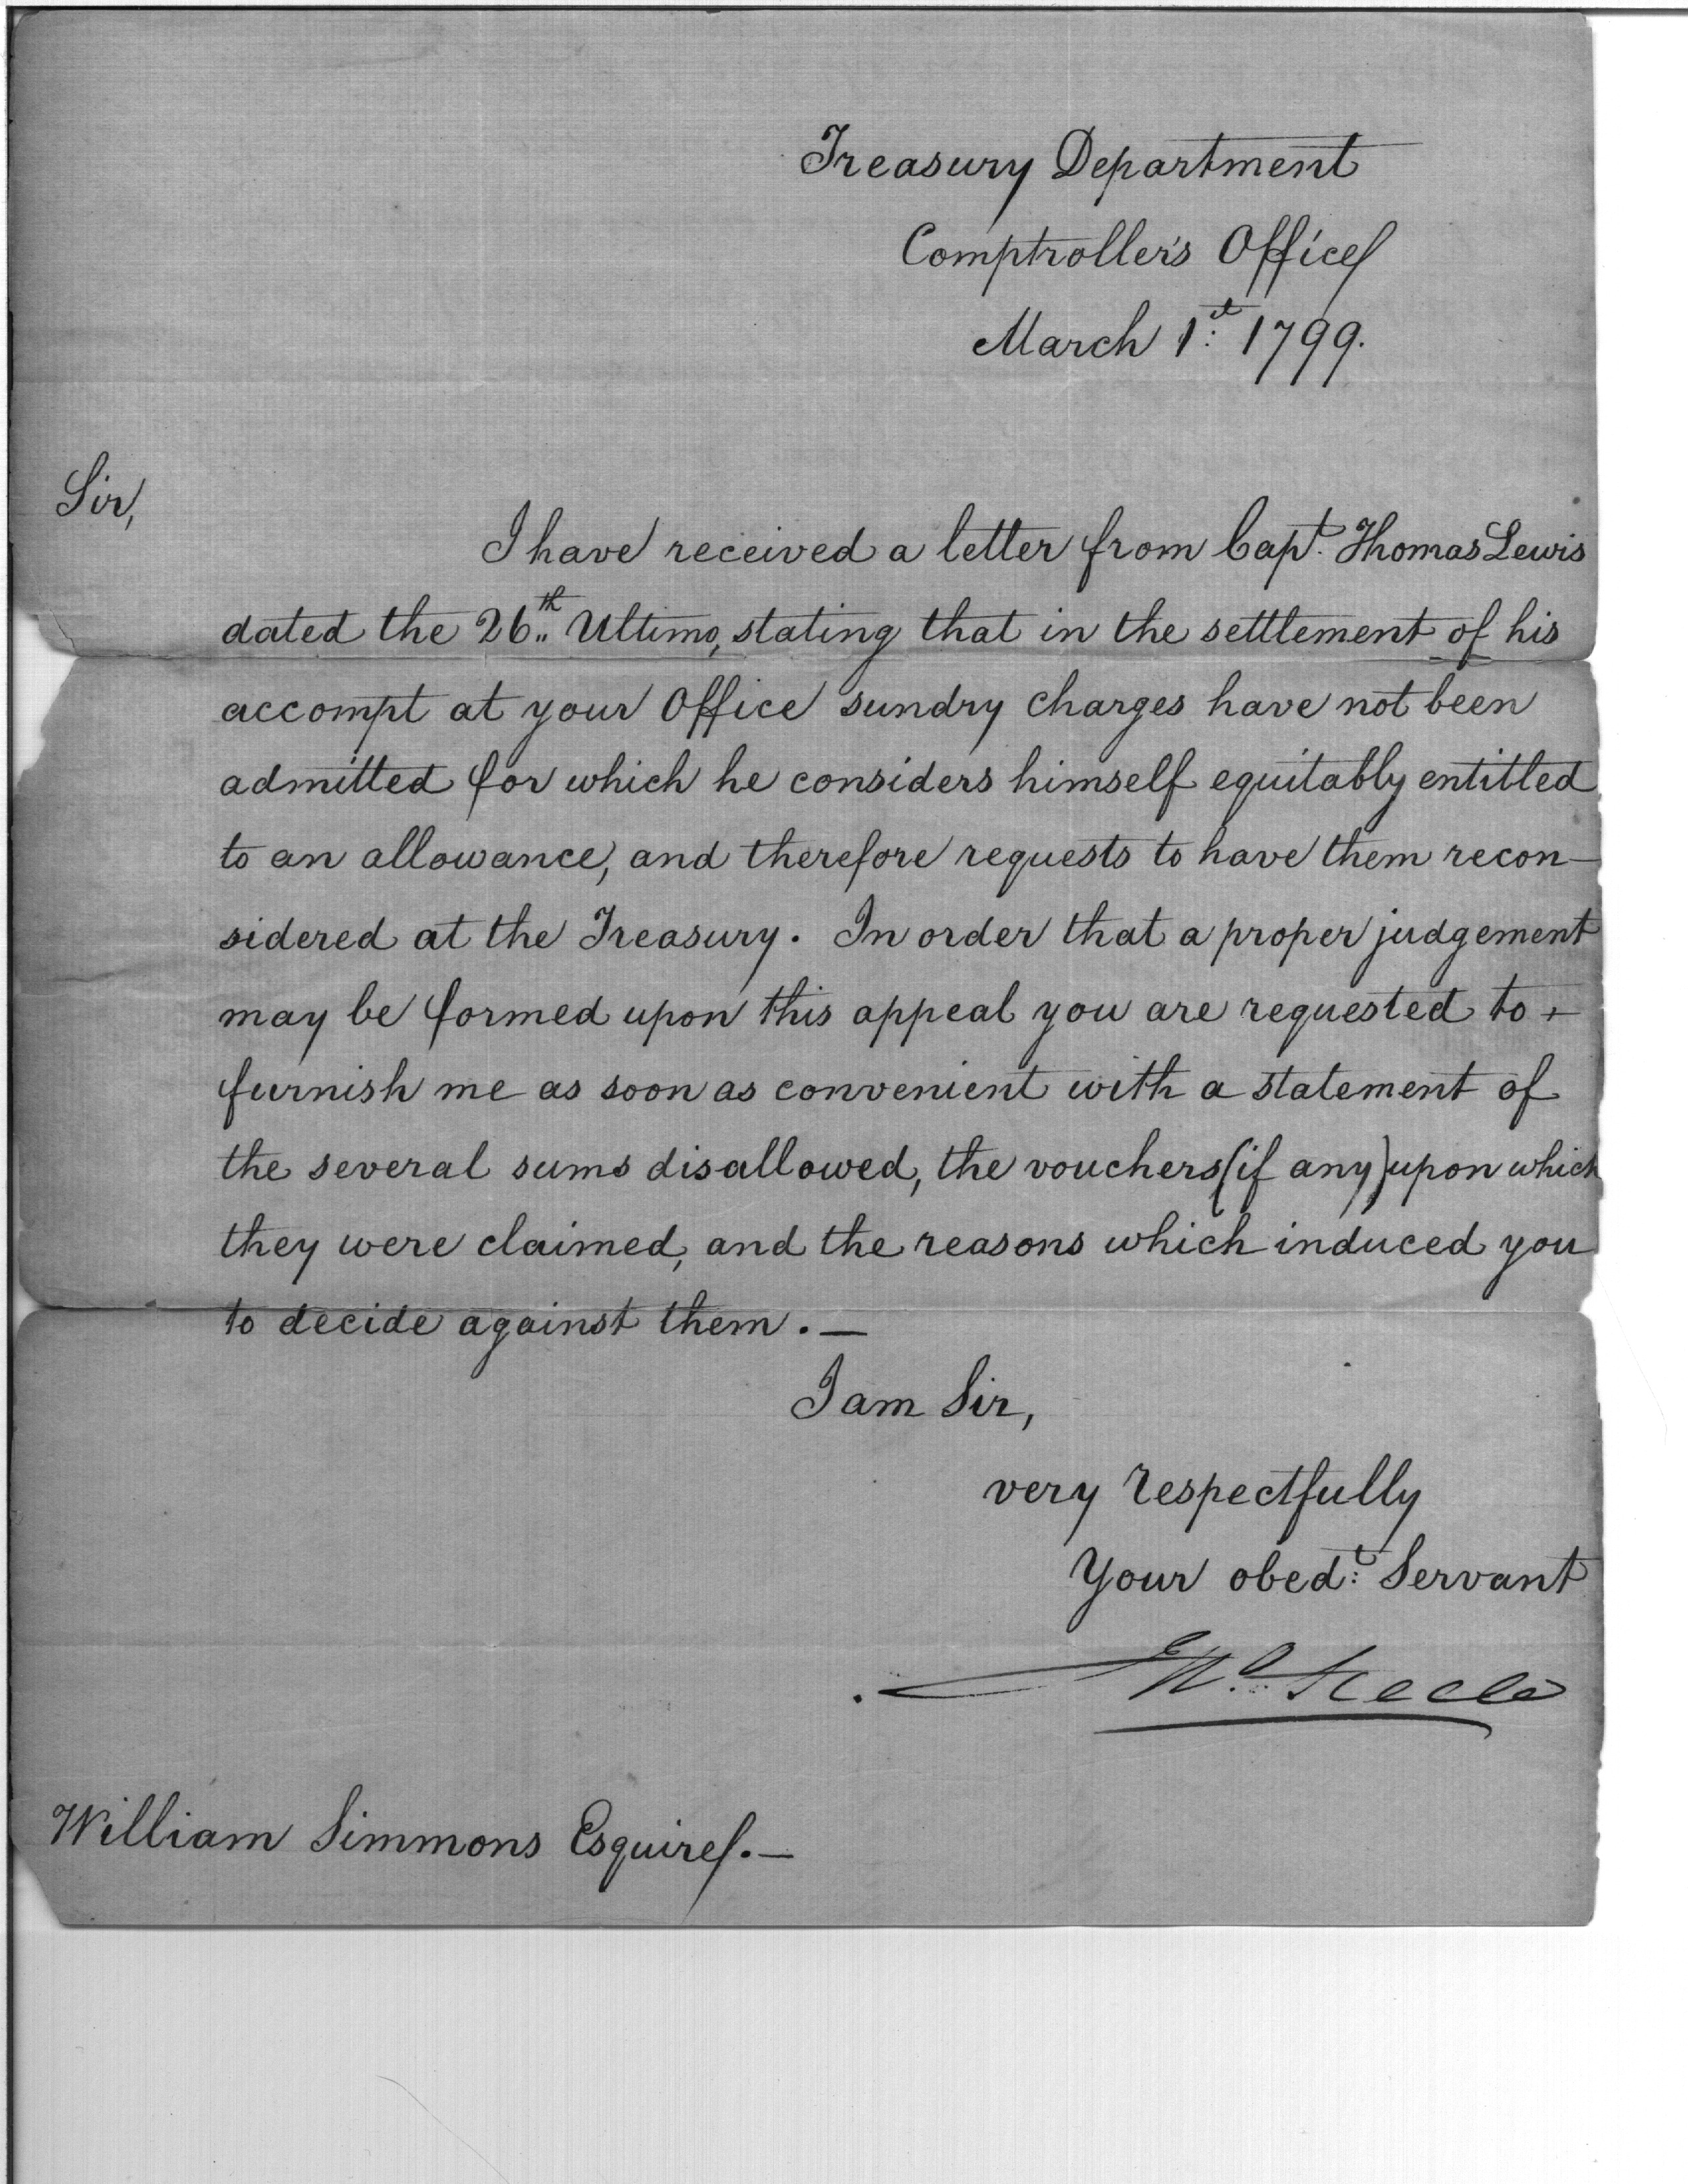 Treasury Department
Comptroller's Office
March 1st. 1799.
Sir,
I have received a letter from Capt. Thomas Lewis
dated the 26th Ultimo, stating that in the settlement of his
accompt at your Office sundry charges have not been
admitted for which he considers himself equitably entitled
to an allowance, and therefore requests to have them recon-
sidered at the Treasury. In order that a proper judgement
may be formed upon this appeal you are requested to
furnish me as soon as convenient with a statement of
the several sums disallowed, the vouchers (if any) upon which
they were claimed, and the reasons which induced you
to decide against them.—
I am Sir,
very respectfully
Your obedt: Servant
Jno. Steele
William Simmons Esquire.—